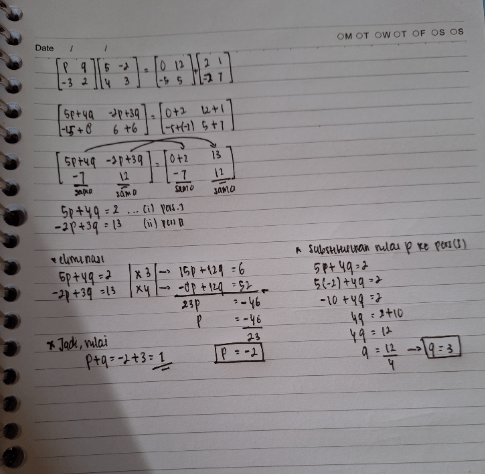 Date / /
OM OT OW OT OF OS OS
[p q; -3 2] [5 -2; 4 3] = [0 12; -5 5] + [2 1; -2 7]
[5p+4q -2p+3q; -15+8 6+6] = [0+2 12+1; -5+(-2) 5+7]
[5p+4q -2p+3q; -7 12] = [0+2 13; -7 12]
sama sama sama sama
5p+4q = 2 ... (i) pers.1
-2p+3q = 13 (ii) pers
* eliminasi
5p+4q = 2 | x 3 | → 15p+12q = 6
-2p+3q = 13 | x 4 | → -8p+12q = 52
23p = -46
p = -46
23
p = -2
* Substitusikan nilai p ke pers(1)
5p+4q = 2
5(-2)+4q = 2
-10+4q = 2
4q = 2+10
4q = 12
q = 12 → q = 3
4
* Jadi, nilai
p+q = -2+3 = 1